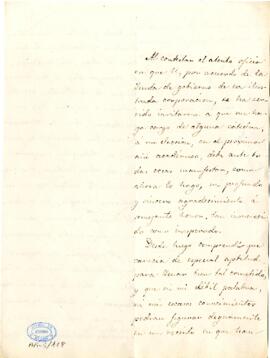 Al contestar el atento oficio
en que V., por acuerdo de la
Junta de gobierno de esa ilus-
trada corporacion, se ha ser-
vido invitarme a que me haga
cargo de alguna catedra,
a mi eleccion, en el proximo
año académico, debo ante to-
das cosas manifestar, como
ahora lo hago, mi profundo
y sincero agradecimiento á
semejante honor, tan inmerecido
como inesperado.
Desde luego comprendí que
carecia de especial aptitud
para llenar bien tal cometido,
y que ni mi débil palabra,
ni mis escasos conocimientos
podian figurar dignamente
en un recinto en que han